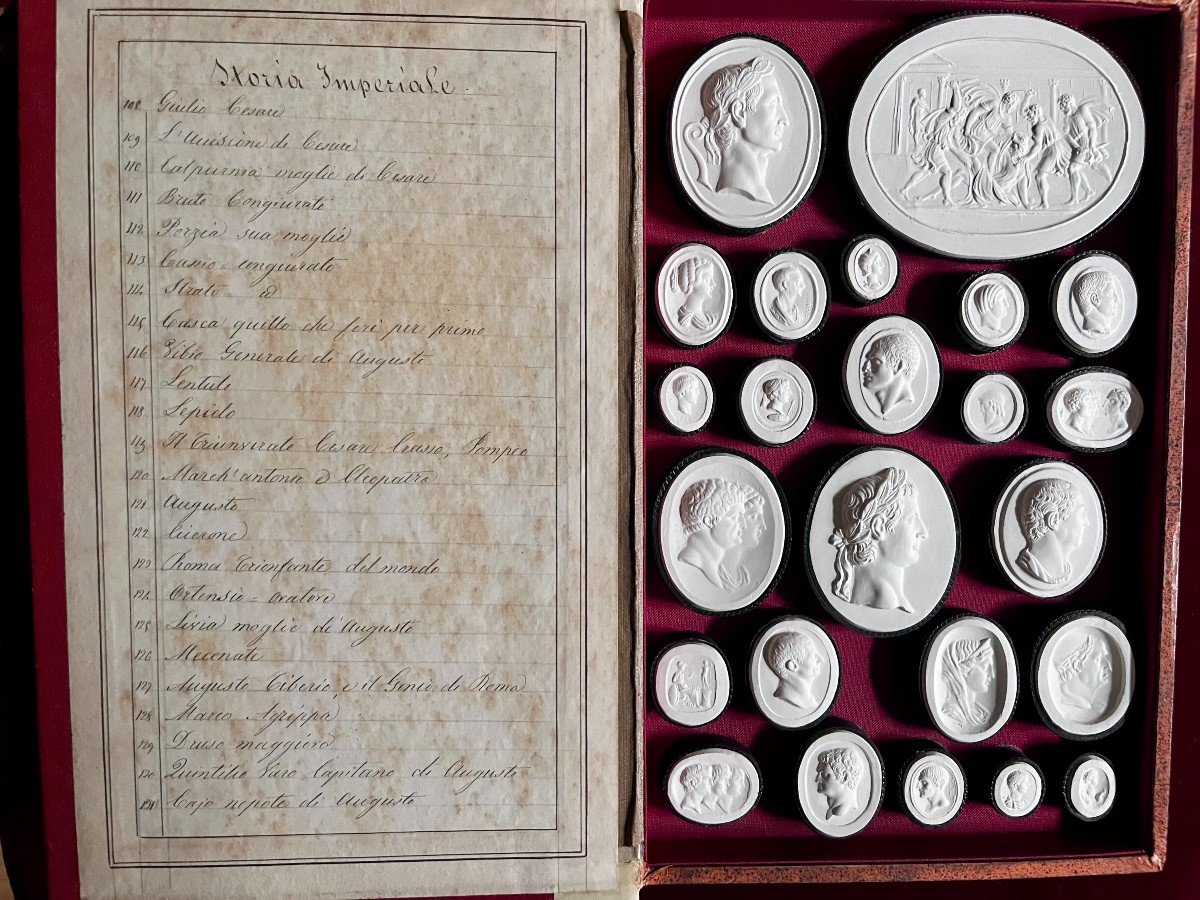 Storia Imperiale.
108 Giulio Cesare
109 L'Uccisione di Cesare
110 Calpurnia moglie di Cesare
111 Bruto Congiurato
112 Porzia sua moglie
113 Cassio - congiurato
114 Strato - id
115 Casca quello che ferì per primo
116 Vibio Generale di Augusto
117 Lentulo
118 Lepido
119 Il Triunvirato Cesare Crasso, Pompeo
120 March'antonio e Cleopatra
121 Augusto
122 Cicerone
123 Roma Trionfante del mondo
124 Ortensio - oratore
125 Livia moglie di Augusto
126 Mecenate
127 Augusto Tiberio e il Genio di Roma
128 Marco Agrippa
129 Druso maggiore
130 Quintilio Varo Capitano di Augusto
131 Cajo nepote di Augusto